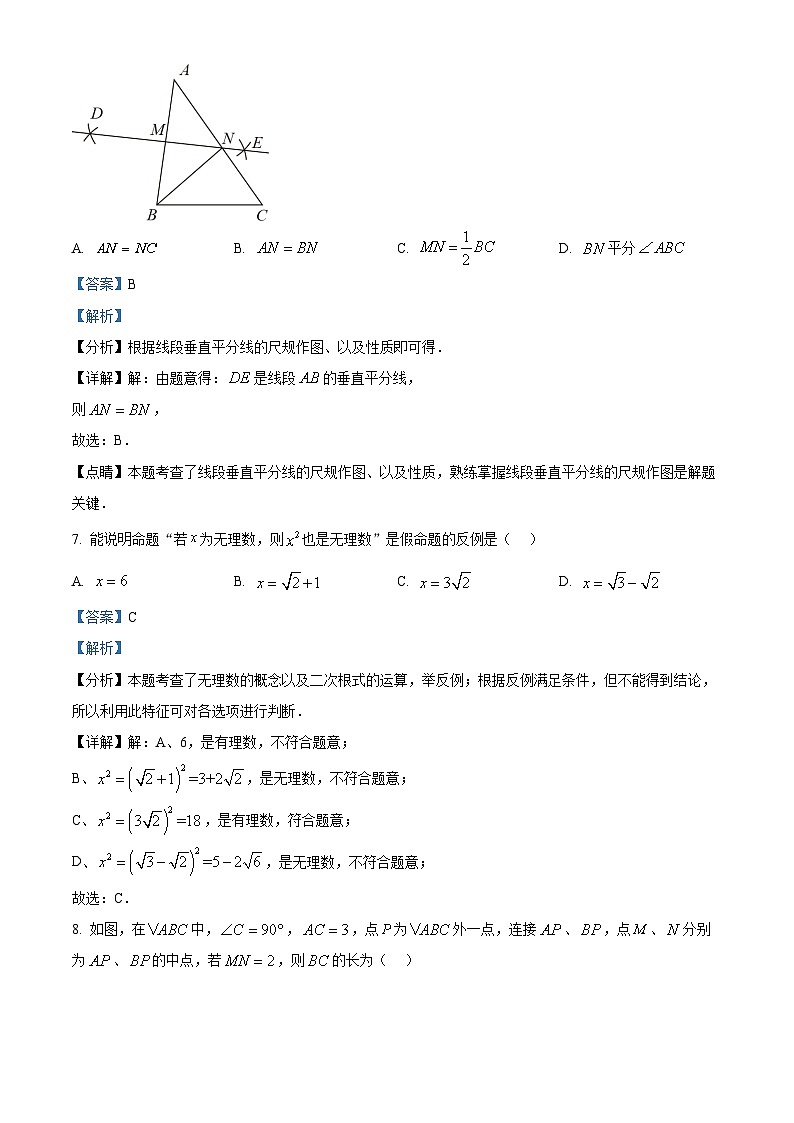 A
D
M
N
E
B
C
A. AN = NC B. AN = BN C. MN = \frac{1}{2}BC D. BN平分∠ABC
【答案】B
【解析】
【分析】根据线段垂直平分线的尺规作图、以及性质即可得.
【详解】解:由题意得: DE是线段AB的垂直平分线,
则AN = BN,
故选:B.
【点睛】本题考查了线段垂直平分线的尺规作图、以及性质,熟练掌握线段垂直平分线的尺规作图是解题
关键.
7. 能说明命题“若x为无理数,则x²也是无理数”是假命题的反例是( )
A. x = 6 B. x = √2+1 C. x = 3√2 D. x = √3−√2
【答案】C
【解析】
【分析】本题考查了无理数的概念以及二次根式的运算,举反例;根据反例满足条件,但不能得到结论,
所以利用此特征可对各选项进行判断.
【详解】解:A、6,是有理数,不符合题意;
B、x² = (√2+1)²=3+2√2,是无理数,不符合题意;
C、x² = (3√2)²=18,是有理数,符合题意;
D、x² = (√3−√2)²=5−2√6,是无理数,不符合题意;
故选:C.
8. 如图,在VABC中,∠C = 90°,AC = 3,点P为VABC外一点,连接AP、BP,点M、N分别
为AP、BP的中点,若MN = 2,则BC的长为( )